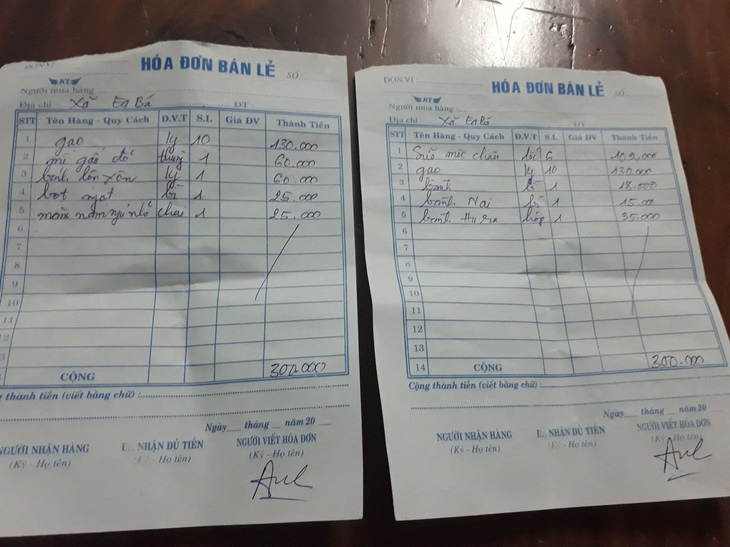 HÓA ĐƠN BÁN LẺ SỐ
KT
Người mua hàng
Địa chỉ Xã Ea Bá ĐT
STT Tên Hàng - Quy Cách Đ.V.T S.L Giá ĐV Thành Tiền
1 gạo ky 10 130.000
2 mì gấu đỏ thùng 1 60.000
3 bánh lộn xộn ky 1 60.000
4 bột ngọt 1 25.000
5 mắm nam ngư nhỏ chai 1 25.000
6
7
8
9
10
11
12
13
CỘNG 300.000
thành tiền (viết bằng chữ) :
Ngày tháng năm 20
NGƯỜI NHẬN HÀNG NHẬN ĐỦ TIỀN NGƯỜI VIẾT HÓA ĐƠN
(Ký - Họ tên) - Họ tên) (Ký - Họ tên)
ĐƠN VỊ : HÓA ĐƠN BÁN LẺ SỐ
KT
Người mua hàng
Địa chỉ Xã Ea Bá ĐT
STT Tên Hàng - Quy Cách Đ.V.T S.L Giá ĐV Thành Tiền
1 Sữa mộc châu lốc 6 102.000
2 gạo ky 10 130.000
3 bánh 1 18.000
4 bánh Nai 1 15.000
5 bánh hộp 1 35.000
6
7
8
9
10
11
12
13
14 CỘNG 300.000
Cộng thành tiền (viết bằng chữ) :
Ngày tháng năm 20
NGƯỜI NHẬN HÀNG NHẬN ĐỦ TIỀN NGƯỜI VIẾT HÓA ĐƠN
(Ký - Họ tên) - Họ tên) (Ký - Họ tên)